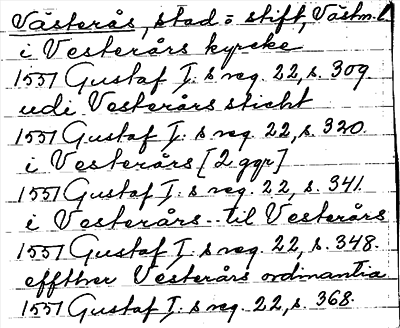 Västerås, stad o stift, Västm. l
i Vesterårs kyrcke
1551 Gustaf I:s reg. 22, s. 309.
udi Vesterårs sticht
1551 Gustaf I:s reg. 22, s. 320.
i Vesterårs [2 ggr]
1551 Gustaf I:s reg. 22, s. 341.
i Vesterårs.. til Vesterårs
1551 Gustaf I:s reg. 22, s. 348.
effther Vesterårs ordinantia
1551 Gustaf I:s reg. 22, s. 368.